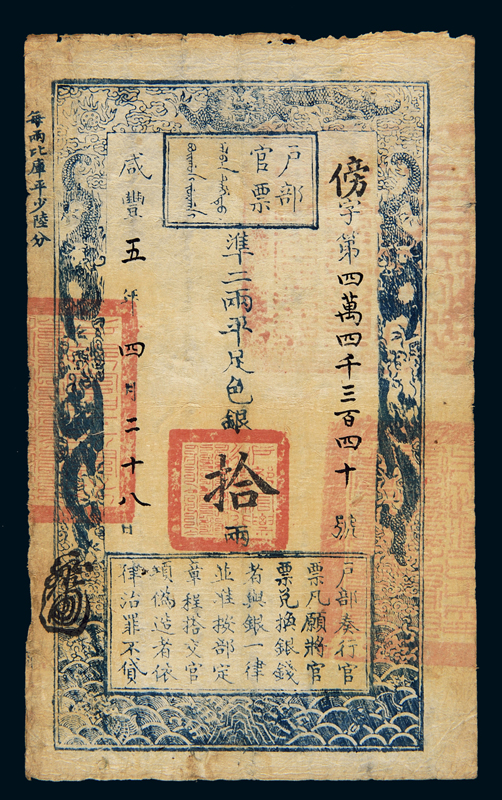 户部
官票
傍字第四萬四千三百四十號
準二兩平足色銀拾兩
咸豐五年四月二十八日
每兩比庫平少陸分
户部奏行官
票凡願將官
票兑換銀錢
者與銀一律
並准按部定
章程搭交官
項僞造者依
律治罪不貸